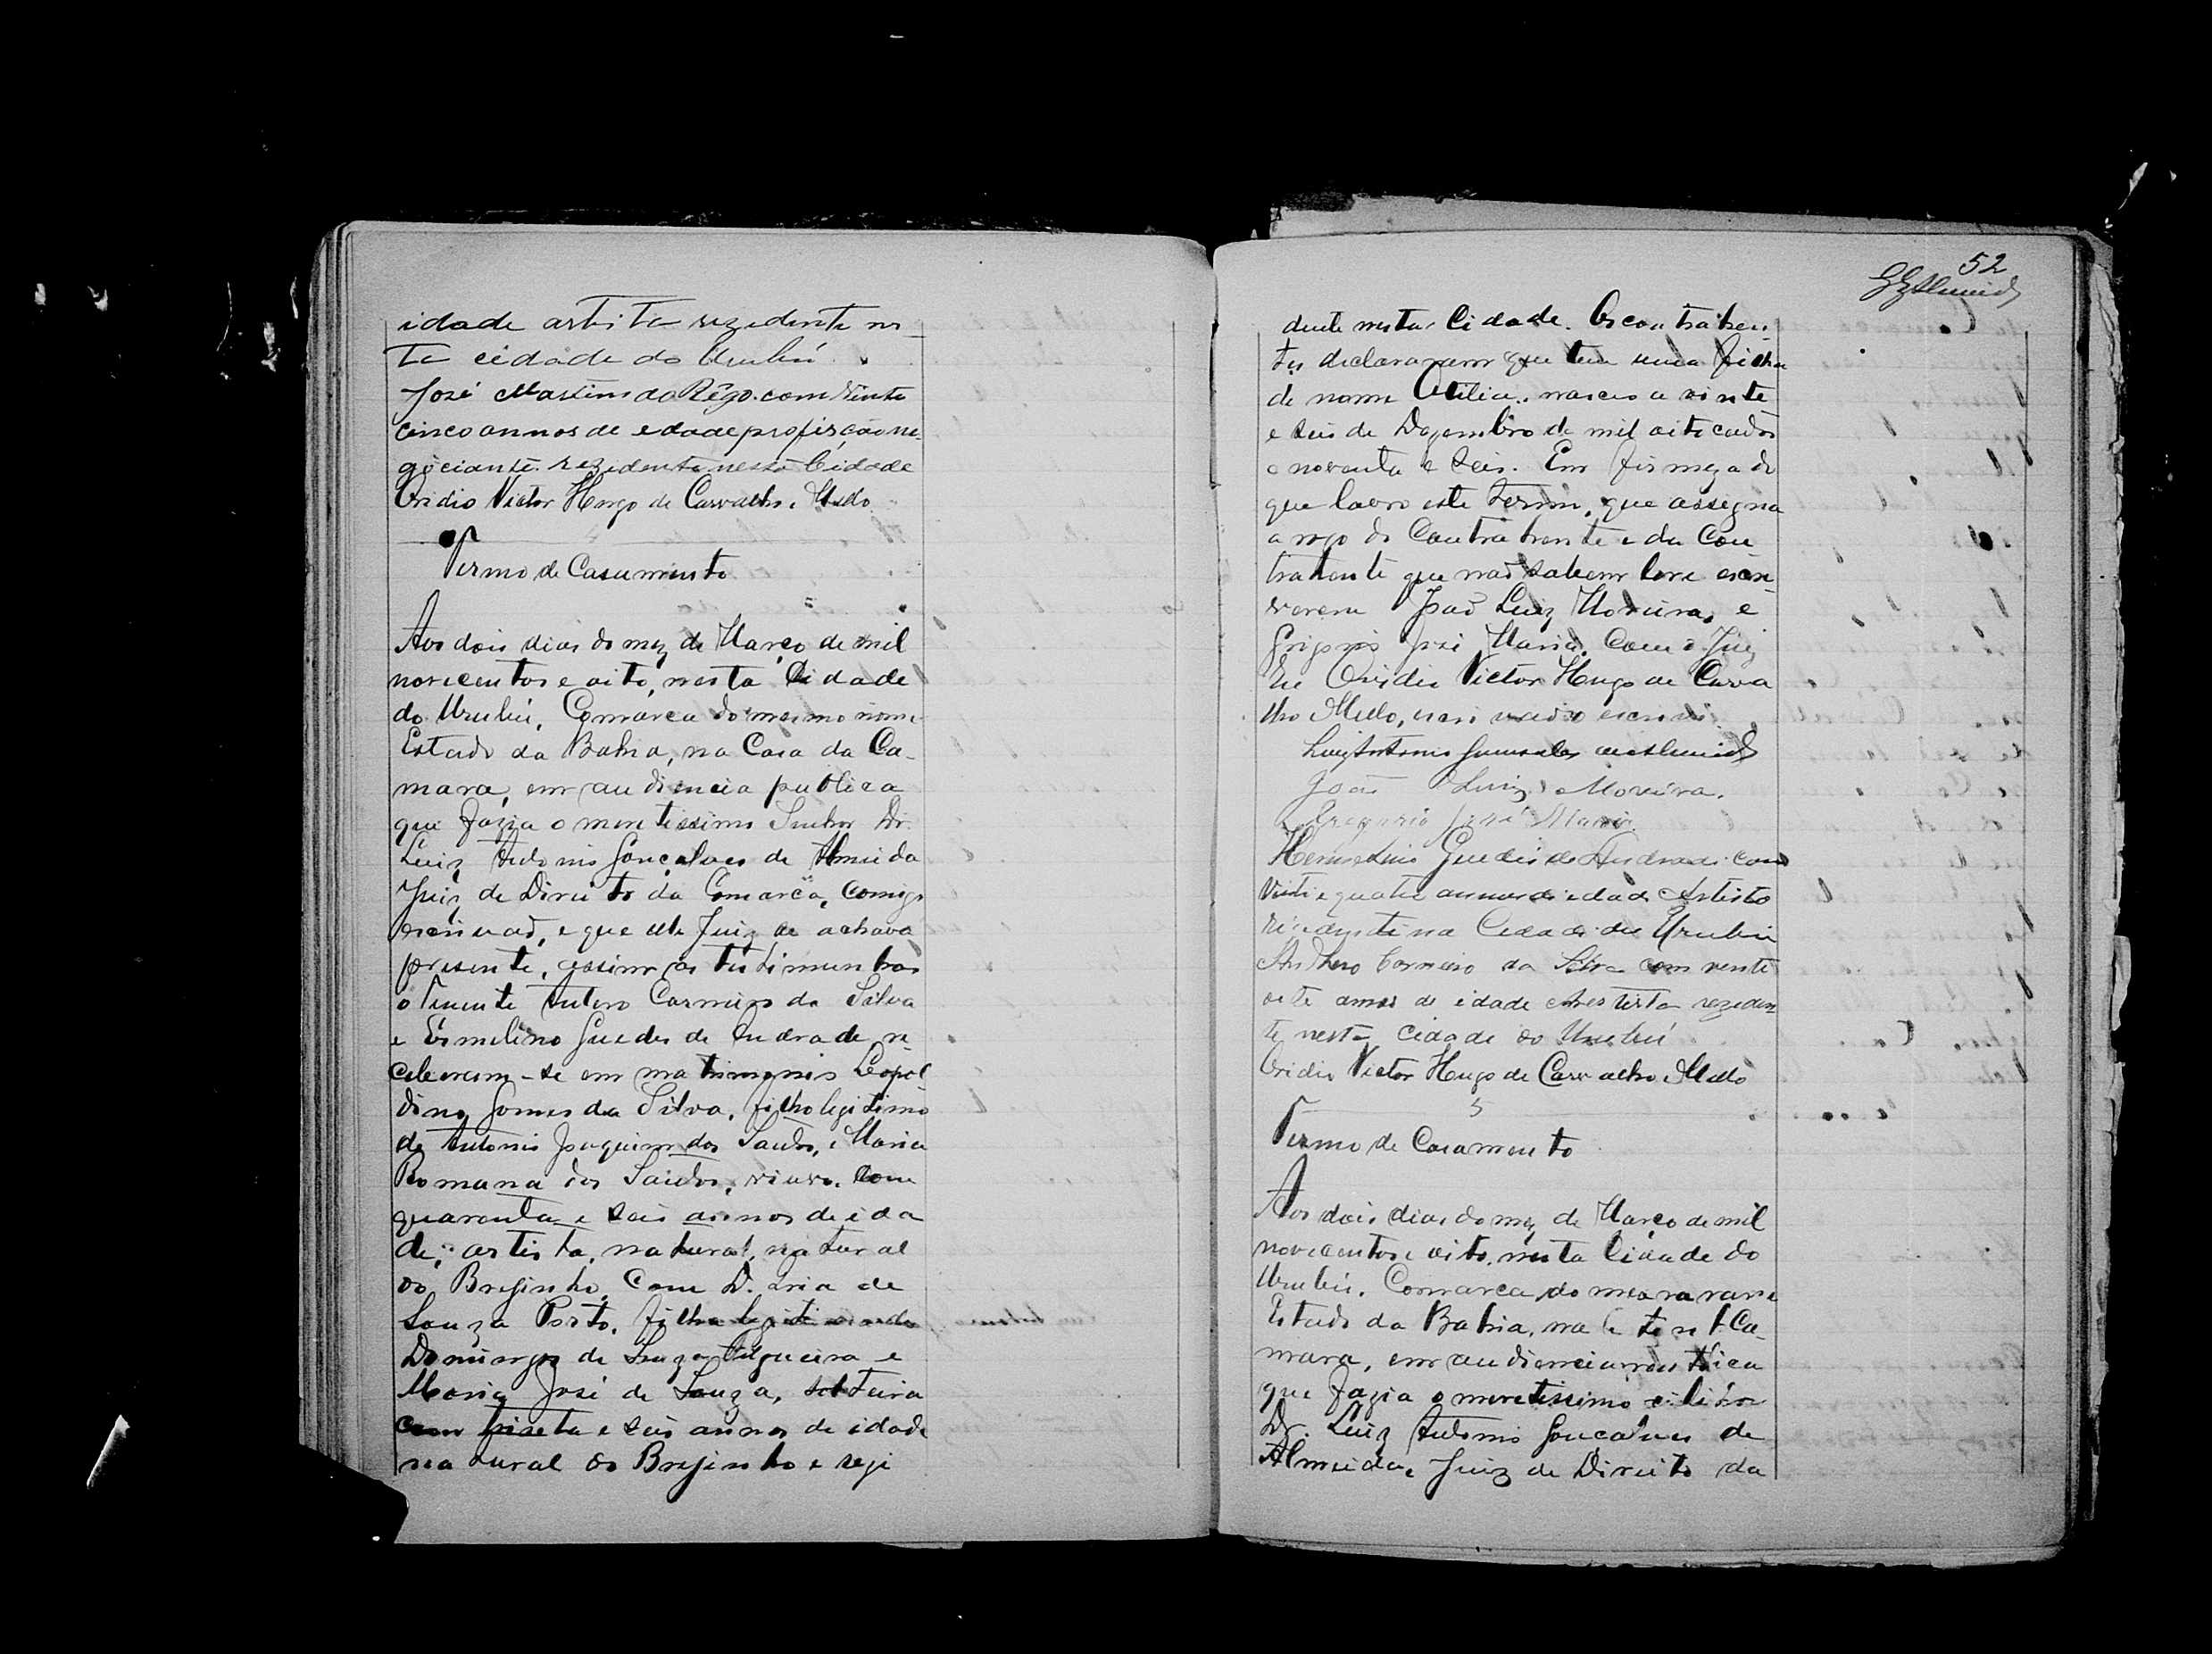 idade artista rezidente nes
ta cidade do Urubú.
José Martins do Rêgo. com vinte
cinco annos de edade profissão ne-
gociante. rezidente nesta Cidade
Ovidio Victor Hugo de Carvalho e Mello.
Termo de Casamento
Aos dois dias do mez de Março de mil
novecentos e oito, nesta Cidade
do Urubú, Comarca do mesmo nome
Estado da Bahia, na Casa da Ca-
mara, em audiencia publica
que fazia o meretissimo Senhor Dr.
Luiz Antonio Gonçalves de Almeida
Juiz de Direito da Comarca, comigo
escrivaõ, e que este Juiz se achava
presente, assim as testimunhas
o Tenente Antero Carneiro da Silva
e Ermelino Guedes de Andrade, re
ceberem-se em matrimonio Leopol
dino Gomes da Silva, filho legitimo
de Antonio Joaquim dos Santos, e Maria
Romana dos Santos, viuvo. com
quarenta e seis annos de ida
de, artista, natural, natural
do Brejinho, Com D. Liria de
Souza Porto, filha legitima de
Domingos de Souza e
Maria José de Souza, solteira
com trinta e seis annos de idade
natural do Brejinho e rezi
52
dente nesta Cidade. Os contrahen-
tes declararam que tem uma filha
de nome Otilia, nasceo a vinte
e seis de Dezembro de mil oitocentos
e noventa e seis. Em firmeza do
que lavro este termo, que assegna
a rogo do Contrahente e da Con
trahente que naõ sabem ler e escre
verem João Luiz Moreira, e
Grigorio José Maria. Com o Juiz
Eu Ovidio Victor Hugo de Carva
lho Mello, escrivaõ o escrevi.
Luiz Antonio Gonsalves de Almeida
João Luiz Moreira.
Gregorio José Maria
Hermelino Guedes de Andrade com
vinte e quatro annos de idade Artista
rezidente na Cidade do Urubú
Anthero Carneiro da Silva com vente
oito annos de idade Artista reziden
te nesta cidade do Urubú
Ovidio Victor Hugo de Carvalho Mello
5
Termo de Casamento
Aos dois dias do mez de Março de mil
novecentos e oito, nesta Cidade do
Urubú, Comarca do mesmo nome
Estado da Bahia, na Ca-
mara, em audiencia publica
que fazia o meretissimo
Dr. Luiz Antonio Goncalves de
Almeida, Juiz de Direito da